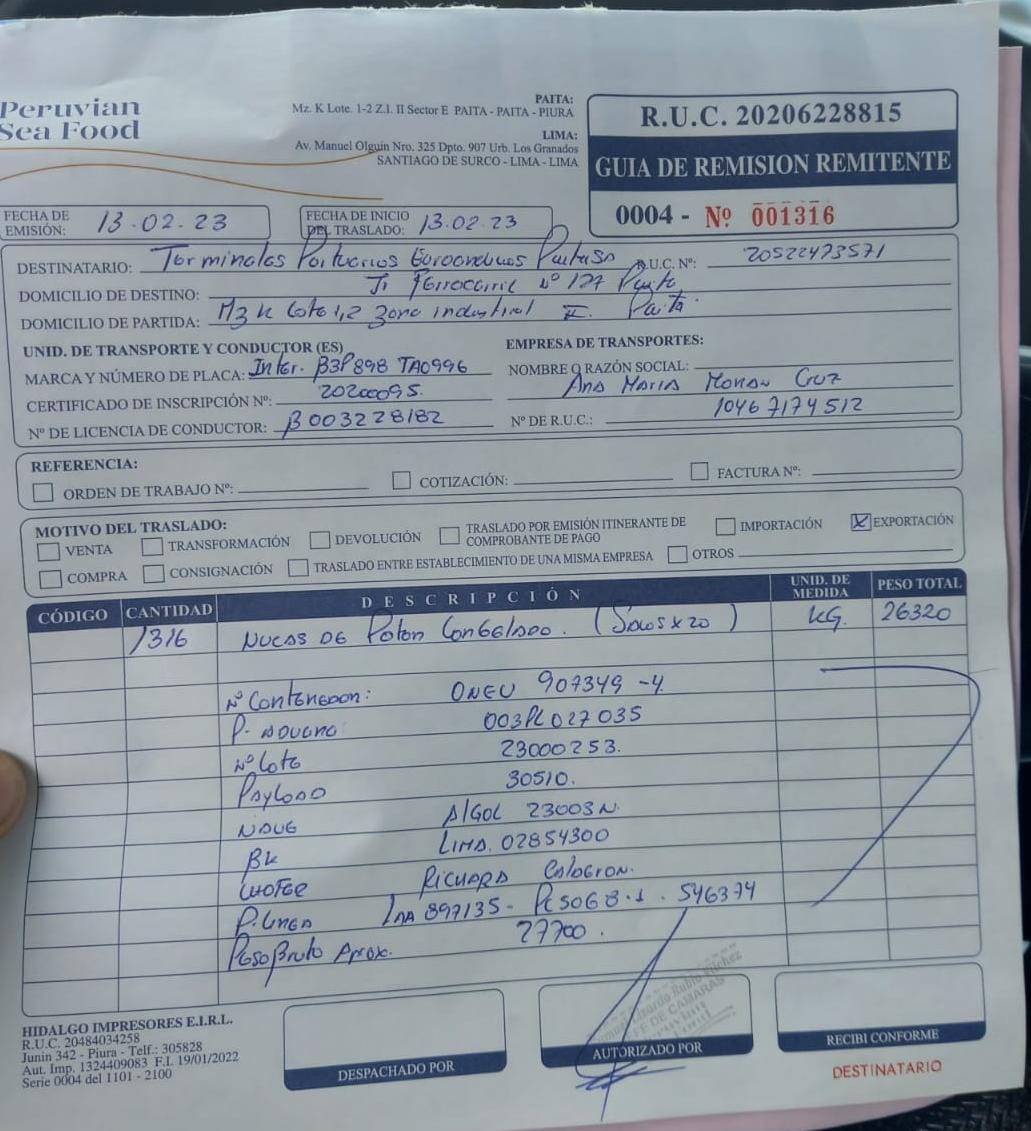 Peruvian
Sea Food
PAITA:
Mz. K Lote. 1-2 Z.I. II Sector E PAITA - PAITA - PIURA
LIMA:
Av. Manuel Olguin Nro. 325 Dpto. 907 Urb. Los Granados
SANTIAGO DE SURCO - LIMA - LIMA
R.U.C. 20206228815
GUIA DE REMISION REMITENTE
0004 - Nº 001316
FECHA DE EMISIÓN: 13.02.23
FECHA DE INICIO DEL TRASLADO: 13.02.23
DESTINATARIO: Terminales Portuarios Euroandinos Paita SA R.U.C. Nº: 20522473571
DOMICILIO DE DESTINO: Jr Ferrocarril Nº 127 Paita
DOMICILIO DE PARTIDA: Mz K Lote 1,2 Zona industrial II. Paita.
UNID. DE TRANSPORTE Y CONDUCTOR (ES)
MARCA Y NÚMERO DE PLACA: Inter. B3P898 TA0996
CERTIFICADO DE INSCRIPCIÓN Nº: 20200095.
Nº DE LICENCIA DE CONDUCTOR: B003228182
EMPRESA DE TRANSPORTES:
NOMBRE O RAZÓN SOCIAL:
Ana Maria Moran Cruz
Nº DE R.U.C.: 10467174512
REFERENCIA:
ORDEN DE TRABAJO Nº: COTIZACIÓN: FACTURA Nº:
MOTIVO DEL TRASLADO:
VENTA TRANSFORMACIÓN DEVOLUCIÓN TRASLADO POR EMISIÓN ITINERANTE DE COMPROBANTE DE PAGO IMPORTACIÓN X EXPORTACIÓN
COMPRA CONSIGNACIÓN TRASLADO ENTRE ESTABLECIMIENTO DE UNA MISMA EMPRESA OTROS
CÓDIGO CANTIDAD DESCRIPCIÓN UNID. DE MEDIDA PESO TOTAL
1316 Nucas de Poton Congelado. (Sacos x 20) KG. 26320
Nº Contenedor: ONEU 907349-4
P. Aduana 003PL027035
Nº Lote 23000253.
Payload 30510.
Nave Algol 23003N.
Bk Lima. 02854300
Chofer Richard Calderon.
P. Linea 897135 - 546374
Peso Bruto Aprox. 27700.
HIDALGO IMPRESORES E.I.R.L.
R.U.C. 20484034258
Junin 342 - Piura - Telf.: 305828
Aut. Imp. 1324409083 F.I. 19/01/2022
Serie 0004 del 1101 - 2100
DESPACHADO POR
JEFE DE CAMARAS
AUTORIZADO POR
RECIBI CONFORME
DESTINATARIO